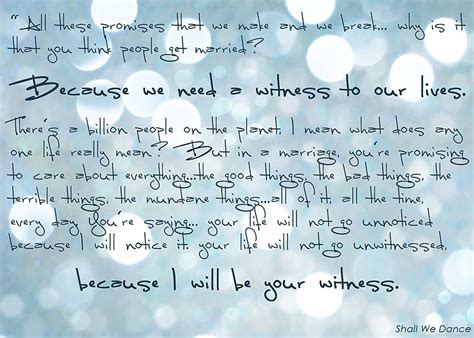 “ All these promises that we make and we break... why is
it that you think people get married?
Because we need a witness to our lives.
There's a billion people on the planet, I mean what does any
one life really mean? But in a marriage, you're promising
to care about everything...the good things, the bad things, the
terrible things, the mundane things...all of it, all the time,
every day. You're saying... your life will not go unnoticed
because I will notice it. your life will not go unwitnessed,
because I will be your witness.
Shall We Dance